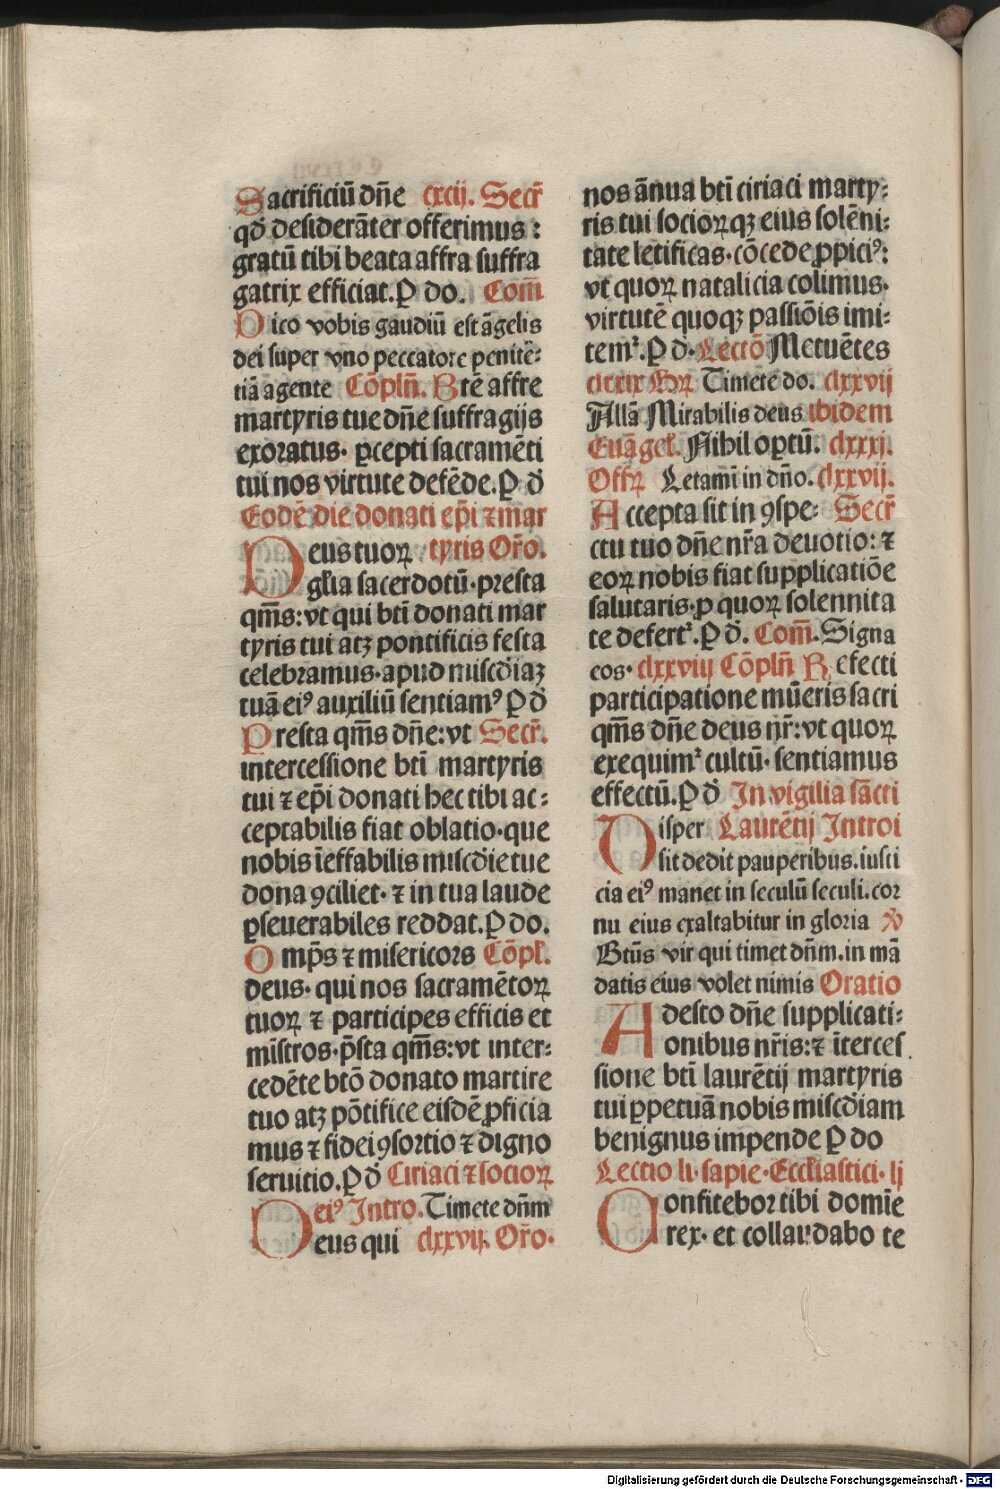 Sacrificiū dn̄e cxcij. Secr̄
qd̄ desiderāter offerimus :
gratū tibi beata affra suffra
gatrix efficiat. P do. Com̄
Dico vobis gaudiū est āgelis
dei super vno peccatore penitē-
tiā agente Cōpln̄. Btē affre
martyris tue dn̄e suffragijs
exoratus· ꝑcepti sacramēti
tui nos virtute defēde. P d̄
Eodē die donati ep̄i ⁊ mar
Deus tuoꝝ tyris Or̄o.
gl̄ia sacerdotū·presta
qm̄s: vt qui bt̄i donati mar
tyris tui atꝫ pontificis festa
celebramus·apud misc̄diaꝫ
tuā eiꝰ auxiliū sentiamꝰ P d̄
Presta qm̄s dn̄e: vt Secr̄.
intercessione bt̄i martyris
tui ⁊ ep̄i donati hec tibi ac-
ceptabilis fiat oblatio·que
nobis īeffabilis misc̄die tue
dona ꝯciliet· ⁊ in tua laude
ꝑseuerabiles reddat. P do.
Omp̄s ⁊ misericors Cōpl̄.
deus· qui nos sacramētoꝝ
tuoꝝ ⁊ participes efficis et
mīstros·p̄sta qm̄s: vt inter-
cedēte btō donato martire
tuo atꝫ pōtifice eisdē ꝓficia
mus ⁊ fidei ꝯsortio ⁊ digno
seruitio. P d̄ Ciriaci ⁊ socioꝝ
eiꝰ Intro. Timete dn̄m
Deus qui clxxvij. Or̄o·
nos ānua bt̄i ciriaci marty-
ris tui socioꝝqꝫ eius solēni-
tate letificas·cōcede ꝓpiciꝰ:
vt quoꝝ natalicia colimus·
virtutē quoqꝫ passiōis imi-
temᷣ. P d· Lectō Metuētes
clxxix Gꝝ Timete do. clxxvij
Allā Mirabilis deus ibidem
Euāgel. Nihil oꝑtū. clxxxj.
Offꝝ Letamī in dn̄o. clxxvij.
Accepta sit in ꝯspe- Secr̄
ctu tuo dn̄e nr̄a deuotio: ⁊
eoꝝ nobis fiat supplicatiōe
salutaris·ꝓ quoꝝ solennita
te defertᷣ. P d̄. Com̄. Signa
eos· clxxviij Cōpln̄ Refecti
participatione mūeris sacri
qm̄s dn̄e deus nr̄: vt quoꝝ
exequimᷣ cultū· sentiamus
effectū. P d̄ In vigilia sācti
Disper Laurētij Introi
sit dedit pauperibus. iusti
cia eiꝰ manet in seculū seculi. cor
nu eius exaltabitur in gloria
Btūs vir qui timet dn̄m. in mā
datis eius volet nimis Oratio
Adesto dn̄e supplicati-
onibus nr̄is: ⁊ īterces
sione bt̄i laurētij martyris
tui ꝑpetuā nobis misc̄diam
benignus impende P do
Lectio li· sapie· Eccl̄iastici· lj
Confitebor tibi domīe
rex· et collaudabo te
Digitalisierung gefördert durch die Deutsche Forschungsgemeinschaft - DFG